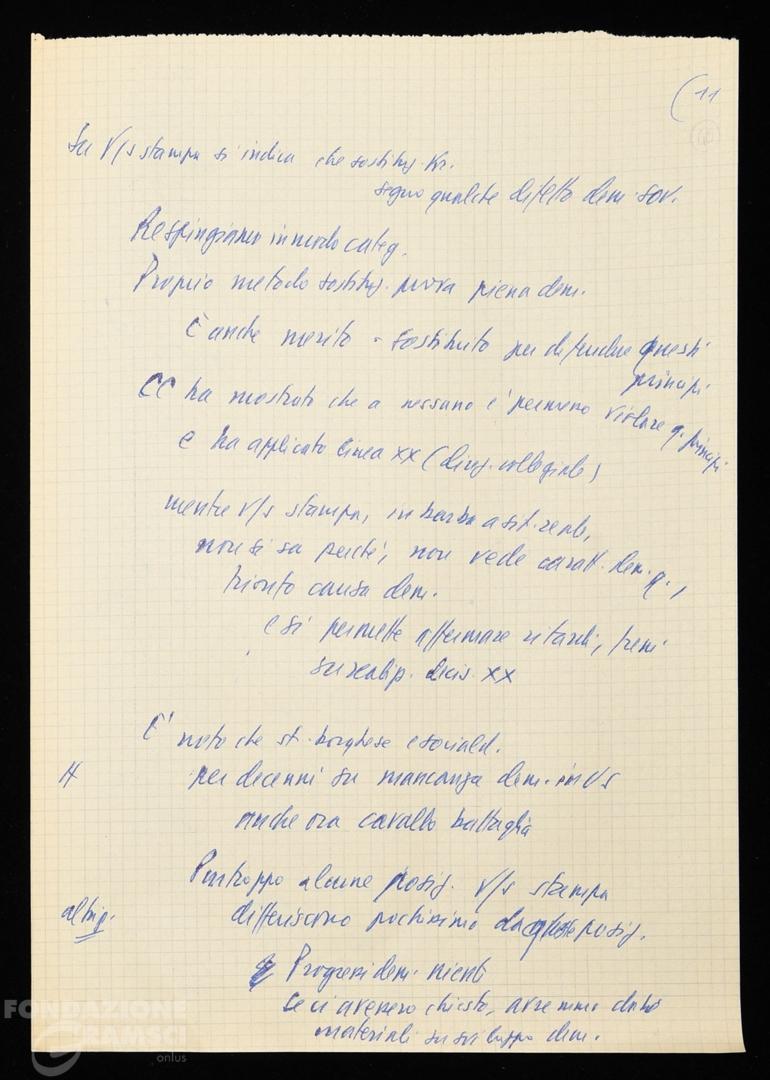 (11
Su V/s stampa si indica che sostituz. Kr.
segno qualche difetto dem. sov.
Respingiamo in modo categ.
Proprio metodo sostituz. prova piena dem.
È anche merito - sostituto per difendere questi
principi
CC ha mostrato che a nessuno è permesso violare q. principi
e ha applicato linea XX (direz. collegiale)
mentre v/s stampa, in barba a sit. reale,
non si sa perché, non vede caratt. dem. q.,
trionfo causa dem.
e si permette affermare ritardi, freni
su realizz. decis. XX
È noto che st. borghese e sociald.
H per decenni su mancanza dem. in Us
anche ora cavallo battaglia
Purtroppo alcune posiz. v/s stampa
differiscono pochissimo da queste posiz.
Progressi dem. nienti
se ci avessero chiesto, avremmo dato
materiali su sviluppo dem.
FONDAZIONE
GRAMSCI
onlus